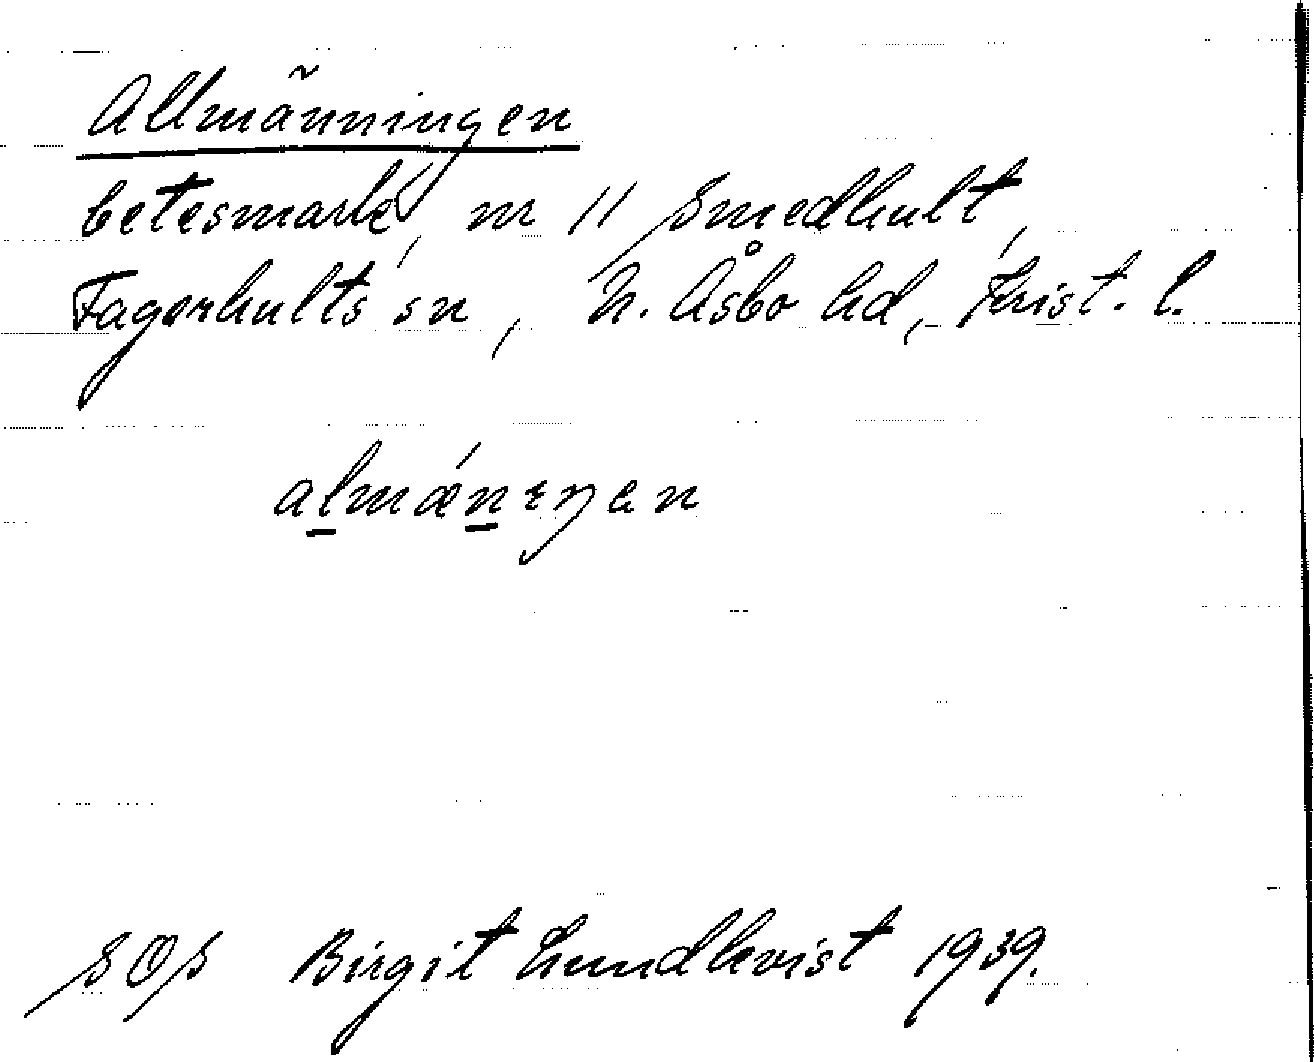 Allmänningen
betesmark, nr 11 Smedhult,
Fagerhults sn, N. Åsbo hd, Krist. l.
almǽnıŋen
SOS Birgit Lundkvist 1939.